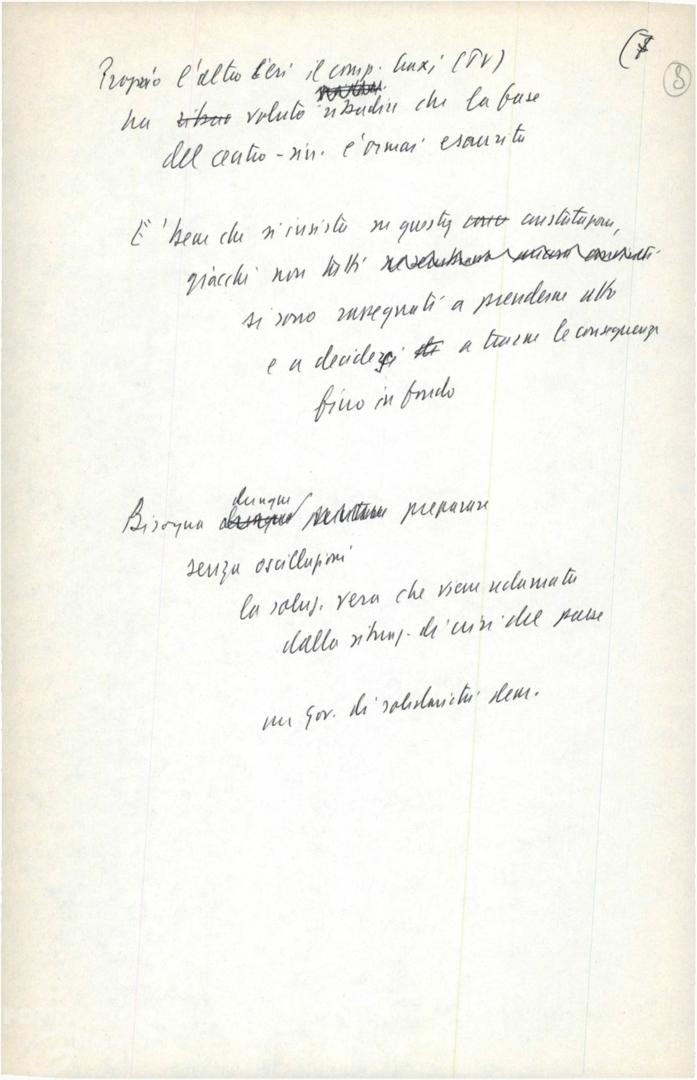 (7
8
Proprio l'altro ieri il comp. Craxi (TV)
ha voluto ribadire che la fase
del centro-sin. è ormai esaurita
E' bene che si insista su questa constatazione,
giacchè non tutti
si sono rassegnati a prenderne atto
e a decidersi a trarne le conseguenze
fino in fondo
Bisogna dunque preparare
senza oscillazioni
la soluz. vera che viene reclamata
dalla situaz. di crisi del paese
un Gov. di solidarietà dem.